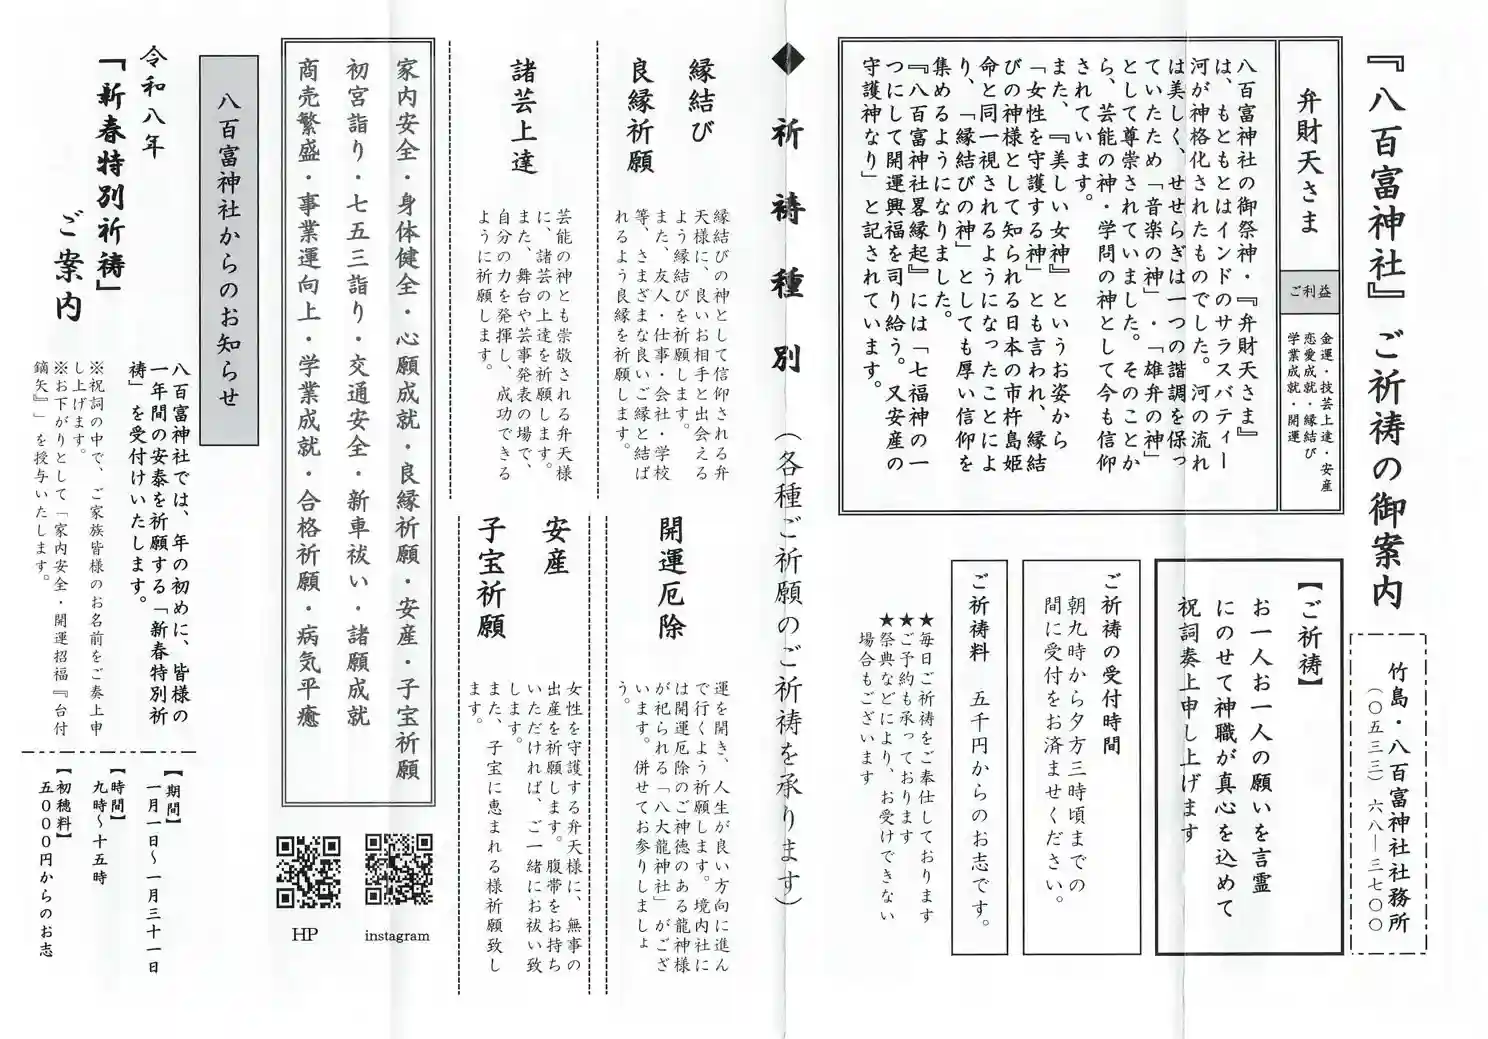 『八百富神社』ご祈祷の御案内
竹島・八百富神社社務所
（〇五三三）六八―三七〇〇
弁財天さま
ご利益
金運・技芸上達・安産
恋愛成就・縁結び
学業成就・開運
八百富神社の御祭神・『弁財天さま』
は、もともとはインドのサラスバティー
河が神格化されたものでした。河の流れ
は美しく、せせらぎは一つの諧調を保っ
ていたため「音楽の神」・「雄弁の神」
として尊崇されていました。そのことか
ら、芸能の神・学問の神として今も信仰
されています。
また、『美しい女神』というお姿から
「女性を守護する神」とも言われ、縁結
びの神様として知られる日本の市杵島姫
命と同一視されるようになったことによ
り、「縁結びの神」としても厚い信仰を
集めるようになりました。
『八百富神社畧縁起』には「七福神の一
つにして開運興福を司り給う。又安産の
守護神なり」と記されています。
【ご祈祷】
お一人お一人の願いを言霊
にのせて神職が真心を込めて
祝詞奏上申し上げます
ご祈祷の受付時間
朝九時から夕方三時頃までの
間に受付をお済ませください。
ご祈祷料　五千円からのお志です。
★毎日ご祈祷をご奉仕しております
★ご予約も承っております
★祭典などにより、お受けできない
場合もございます
◆祈祷種別（各種ご祈願のご祈祷を承ります）
縁結び
良縁祈願
縁結びの神として信仰される弁
天様に、良いお相手と出会える
よう縁結びを祈願します。
また、友人・仕事・会社・学校
等、さまざまな良いご縁と結ば
れるよう良縁を祈願します。
開運厄除
運を開き、人生が良い方向に進ん
で行くよう祈願します。境内社に
は開運厄除のご神徳のある龍神様
が祀られる「八大龍神社」がござ
います。併せてお参りしましょ
う。
諸芸上達
芸能の神とも崇敬される弁天様
に、諸芸の上達を祈願します。
また、舞台や芸事発表の場で、
自分の力を発揮し、成功できる
ように祈願します。
安産
子宝祈願
女性を守護する弁天様に、無事の
出産を祈願します。腹帯をお持ち
いただければ、ご一緒にお祓い致
します。
また、子宝に恵まれる様祈願致し
ます。
家内安全・身体健全・心願成就・良縁祈願・安産・子宝祈願
初宮詣り・七五三詣り・交通安全・新車祓い・諸願成就
商売繁盛・事業運向上・学業成就・合格祈願・病気平癒
instagram
HP
八百富神社からのお知らせ
令和八年
「新春特別祈祷」
ご案内
八百富神社では、年の初めに、皆様の
一年間の安泰を祈願する「新春特別祈
祷」を受付けいたします。
※祝詞の中で、ご家族皆様のお名前をご奏上申
し上げます。
※お下がりとして「家内安全・開運招福『台付
鏑矢』」を授与いたします。
【期間】
一月一日～一月三十一日
【時間】
九時～十五時
【初穂料】
五〇〇〇円からのお志